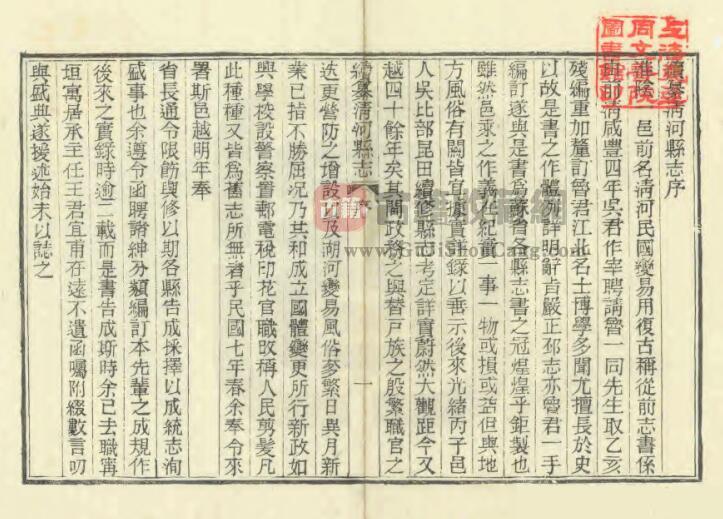 續纂清河縣志序
淮陰 邑前名清河民國變易用復古稱從前志書係
由前清咸豐四年吳君作宰聘請魯一同先生取乙亥
殘編重加釐訂魯君江北名士博學多聞尤擅長於史
以故是書之作體例詳明辭旨嚴正邳志亦魯君一手
編訂遂與是書為蘇省各縣志書之冠煌煌乎鉅製也
雖然邑乘之作義在紀實一事一物或損或益但與地
方風俗有關皆宜據實詳錄以垂示後來光緒丙子邑
人吳比部昆田續修縣志考定詳實蔚然大觀距今又
越四十餘年矣其間政務之興替戶族之殷繁職官之
續纂清河縣志 序 一
迭更營防之增設以及湖河變易風俗奢繁日異月新
業已指不勝屈况乃共和成立國體變更所行新政如
興學校設警察置郵電稅印花官職改稱人民剪髮凡
此種種又皆為舊志所無者乎民國七年春余奉令來
署斯邑越明年奉
省長通令限飭與修以期各縣告成採擇以成統志洵
盛事也余遵令函聘諸紳分類編訂本先輩之成規作
後來之實錄時逾二載而是書告成斯時余已去職甯
垣寓居承主任王君宜甫在遠不遺函囑附綴數言叨
與盛典遂援述始末以誌之
古籍收藏網
www.GuJiShouCang.com